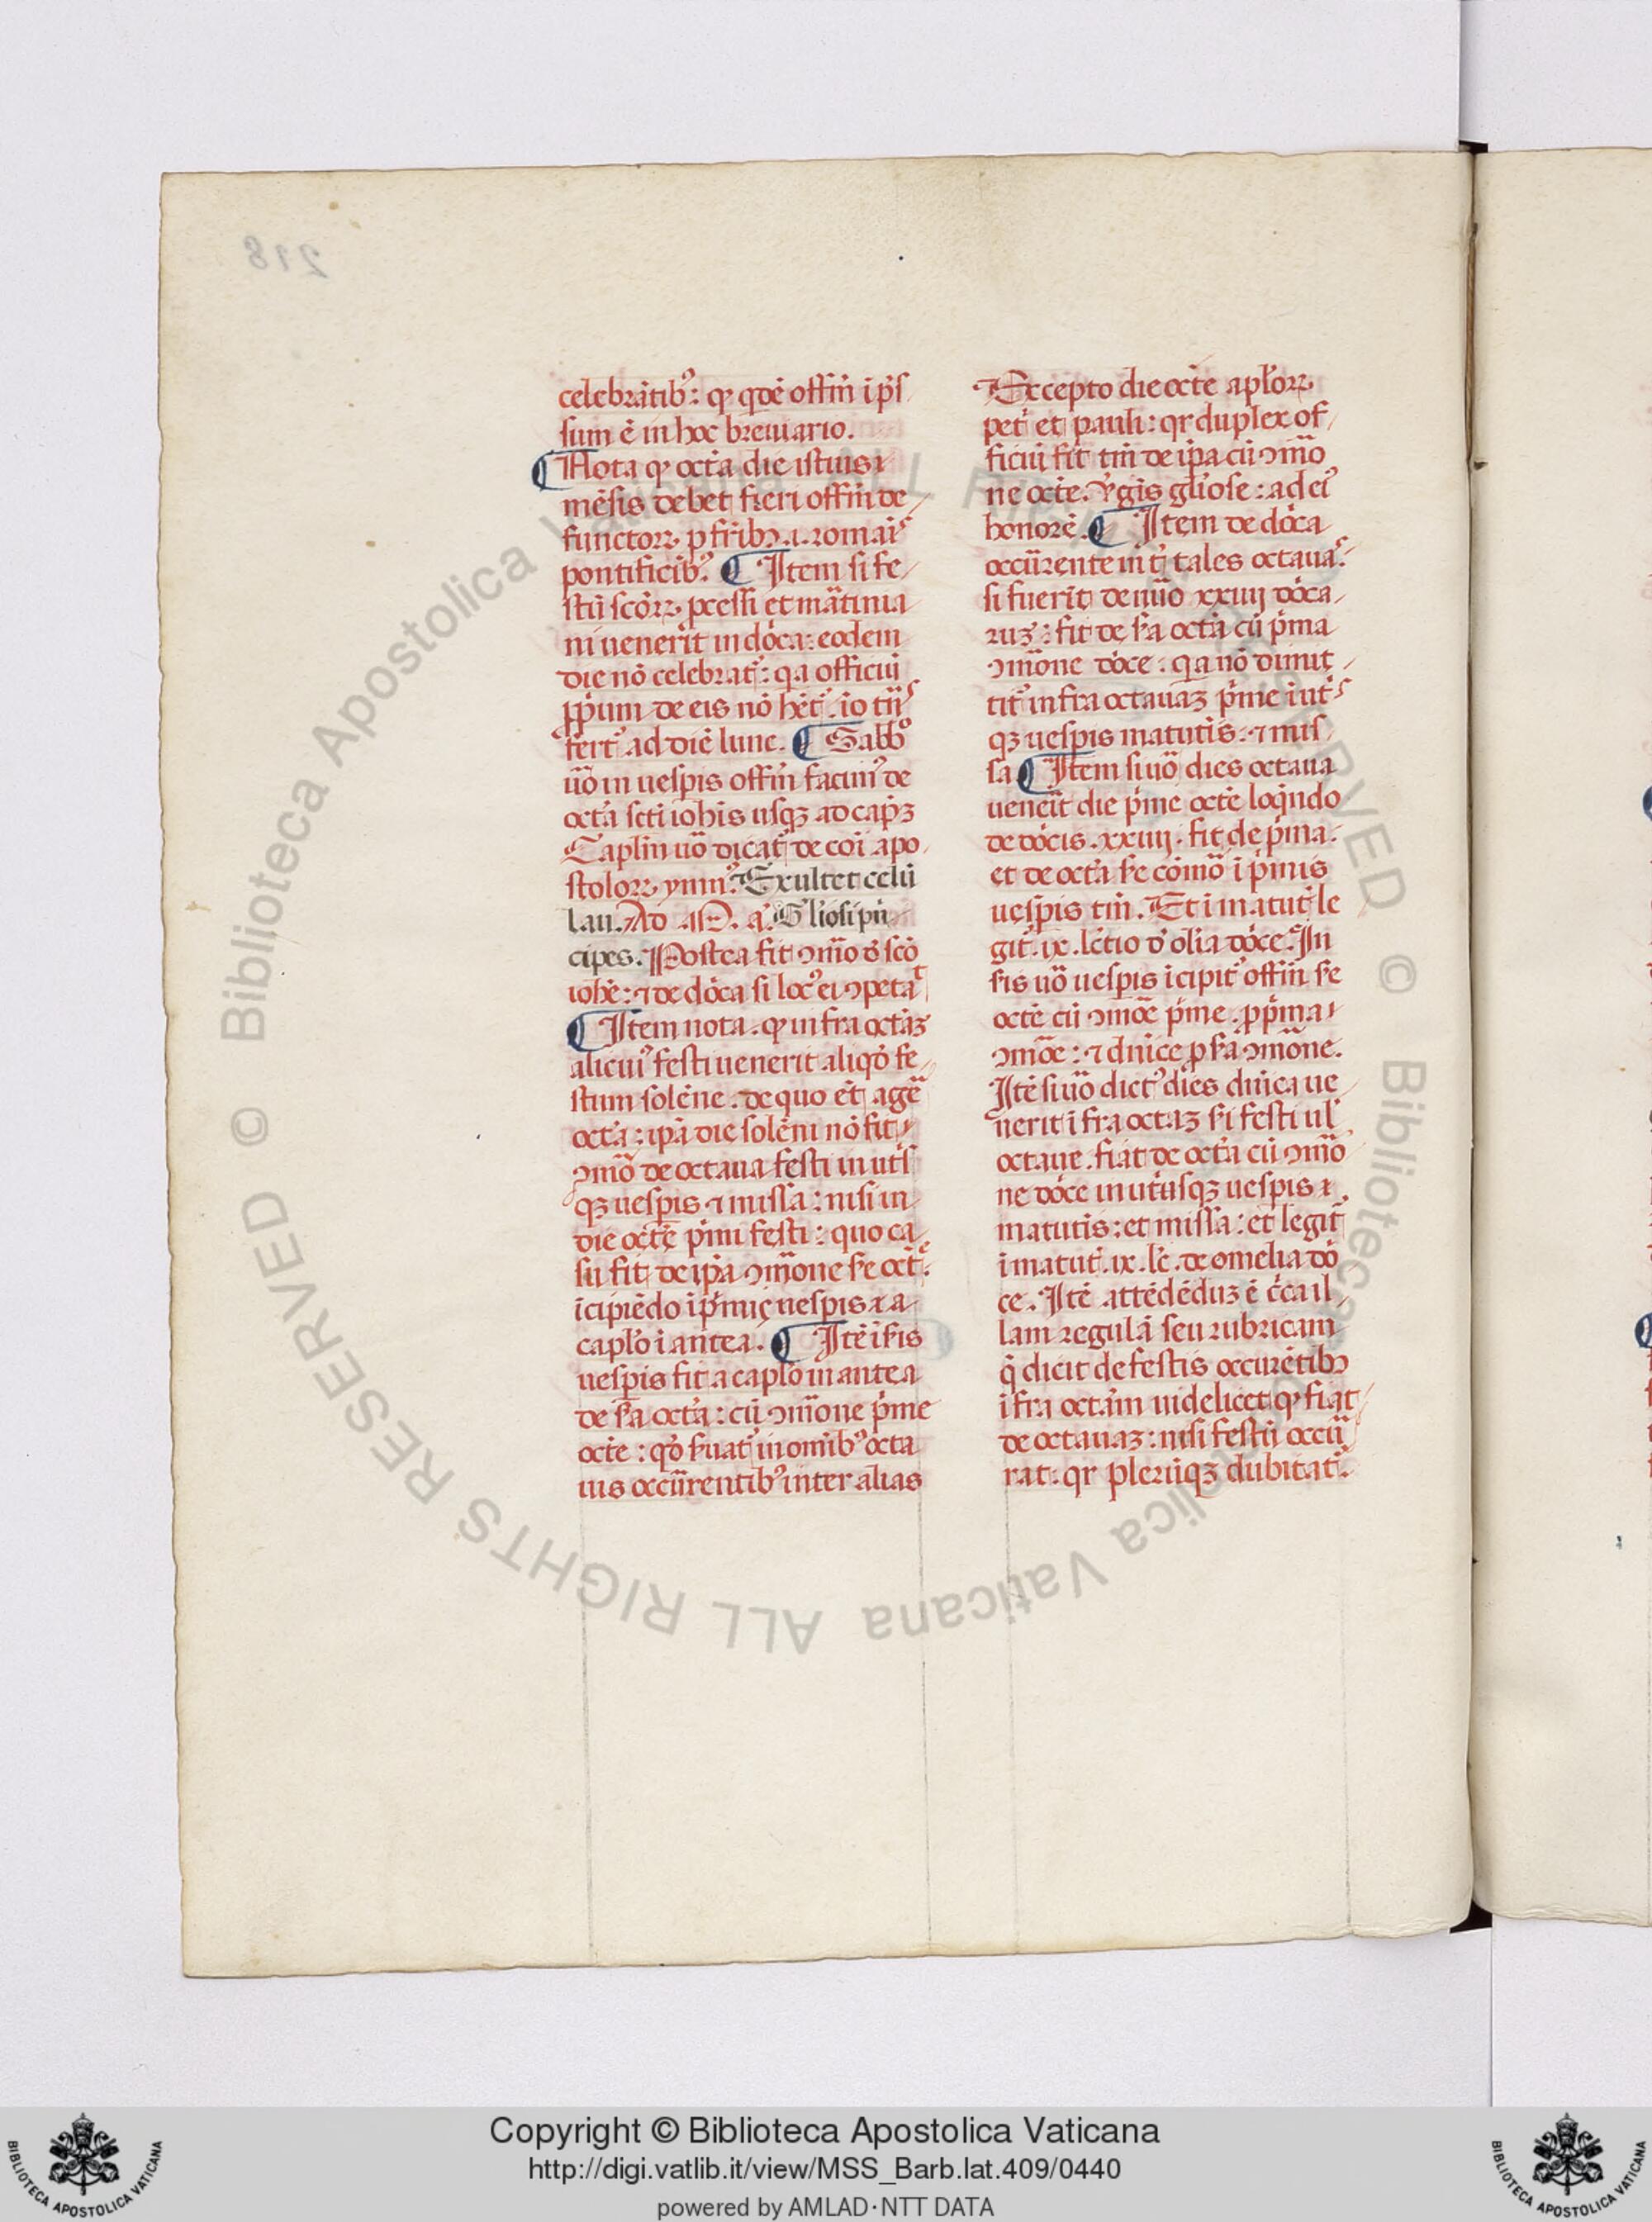 218
celebrãtib᷒: ꝙ qđẽ offm̃ i ip̃s
sium ẽ in hoc breuiario.
¶ Nota ꝙ octa die istius
mẽsis debet fieri offm̃ de
functoꝝ p fribꝫ ⁊ romais
pontificib᷒. ¶ Item si fe
stũ scõꝝ pcessi et mãtinia
ni uenerit in dõca: eodem
die nõ celebrat᷒: qa officiũ
ꝓpium de eis nõ hẽt. iõ trñs
fert᷒ ad diẽ lune. ¶ Sabbo
uõ in uespis offm̃ facim᷒ de
octa scti iohis usqꝫ ad capꝫ
Caplm uõ dicat᷒ de coi apo
stoloꝝ ymn᷒. Exultet celũ
lau. Ad .M. a᷒. Gliosi pn
cipes. Postea fit ꝯmõ d scõ
iohẽ: ⁊ de dõca si loc᷒ ei ꝯpetat
¶ Item nota. ꝙ infra octaꝫ
alicui᷒ festi uenerit aliqõ fe
stum solẽne. de quo ẽt agẽ
octa: ipa die solẽni nõ fit
ꝯmõ de octaua festi in utͥs
qꝫ uespis ⁊ missa: nisi in
die octẽ pͥmi festi: quo ca
su fit de ipa ꝯmõne ſe oct.
icipiẽdo i pͥmis uespis ⁊ a
caplo i antea. ¶ Itẽ i ſis
uespis fit a caplo in antea
de ſa octa: cũ ꝯmõne pͥme
octe: qõ ſuat᷒ in omib᷒ octa
uis occũrentib᷒ inter alias
Excepto die octe aploꝝ
pet et pauli: qr duplex of
ficiũ fit tm̃ de ipa cũ ꝯmõ
ne octe. uͥgis gliose: ad ei᷒
honorẽ. ¶ Item de dõca
occũrente int tales octauas.
si fuerit de nuõ xxiiij dõca
ruꝫ: fit de ſa octa cũ pͥma
ꝯmõne dõce: qa nõ dimit
tit᷒ infra octauaꝫ pͥme i utͥs
qꝫ uespis matutis. ⁊ mis
sa ¶ Item si uõ dies octaua
uenẽit die pͥme octe loqͥndo
de dõcis. xxiiij. fit de pͥma.
et de octa ſe cõmõ i pͥmis
uespis tm̃. Et i matut᷒ le
git᷒. ix. lctio d olia dõce. In
ſis uõ uespis icipit᷒ offm̃ ſe
octẽ cũ ꝯmõe pͥme. p pͥma
ꝯmõe: ⁊ dnice p ſa ꝯmõne.
Itẽ si uõ dict᷒ dies dnica ue
nerit i fra octaꝫ ſi festi ul
octaue. fiat de octa cũ ꝯmõ
ne dõce in utͥusqꝫ uespis ⁊
matutis: et missa: et legit᷒
i matut᷒. ix. lc. de omelia dõ
ce. Itẽ attẽdẽduꝫ ẽ cͥca il
lam regulã seu rubricam
q̃ dicit de festis occurẽtibꝫ
i fra octam uidelicet ꝙ fiat
de octauaꝫ: nisi festũ occũ
rat. qr pleriqꝫ dubitat᷒.
© Biblioteca Apostolica Vaticana ALL RIGHTS RESERVED © Biblioteca Apostolica Vaticana ALL RIGHTS RESERVED
Copyright © Biblioteca Apostolica Vaticana
http://digi.vatlib.it/view/MSS_Barb.lat.409/0440
powered by AMLAD·NTT DATA
BIBLIOTECA APOSTOLICA VATICANA
BIBLIOTECA APOSTOLICA VATICANA